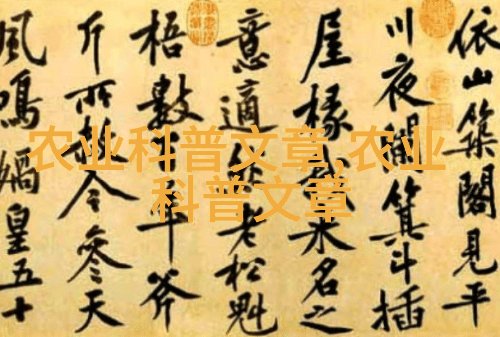 依山築閣見平
川夜闌箕斗插
屋椽我來名之
意適然老松魁
梧數百年斧
斤所赦今參天
風鳴媧皇五十
农业科普文章-农业
科普文章